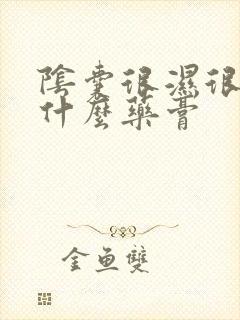 陰囊很濕很
什麼藥膏
金魚雙